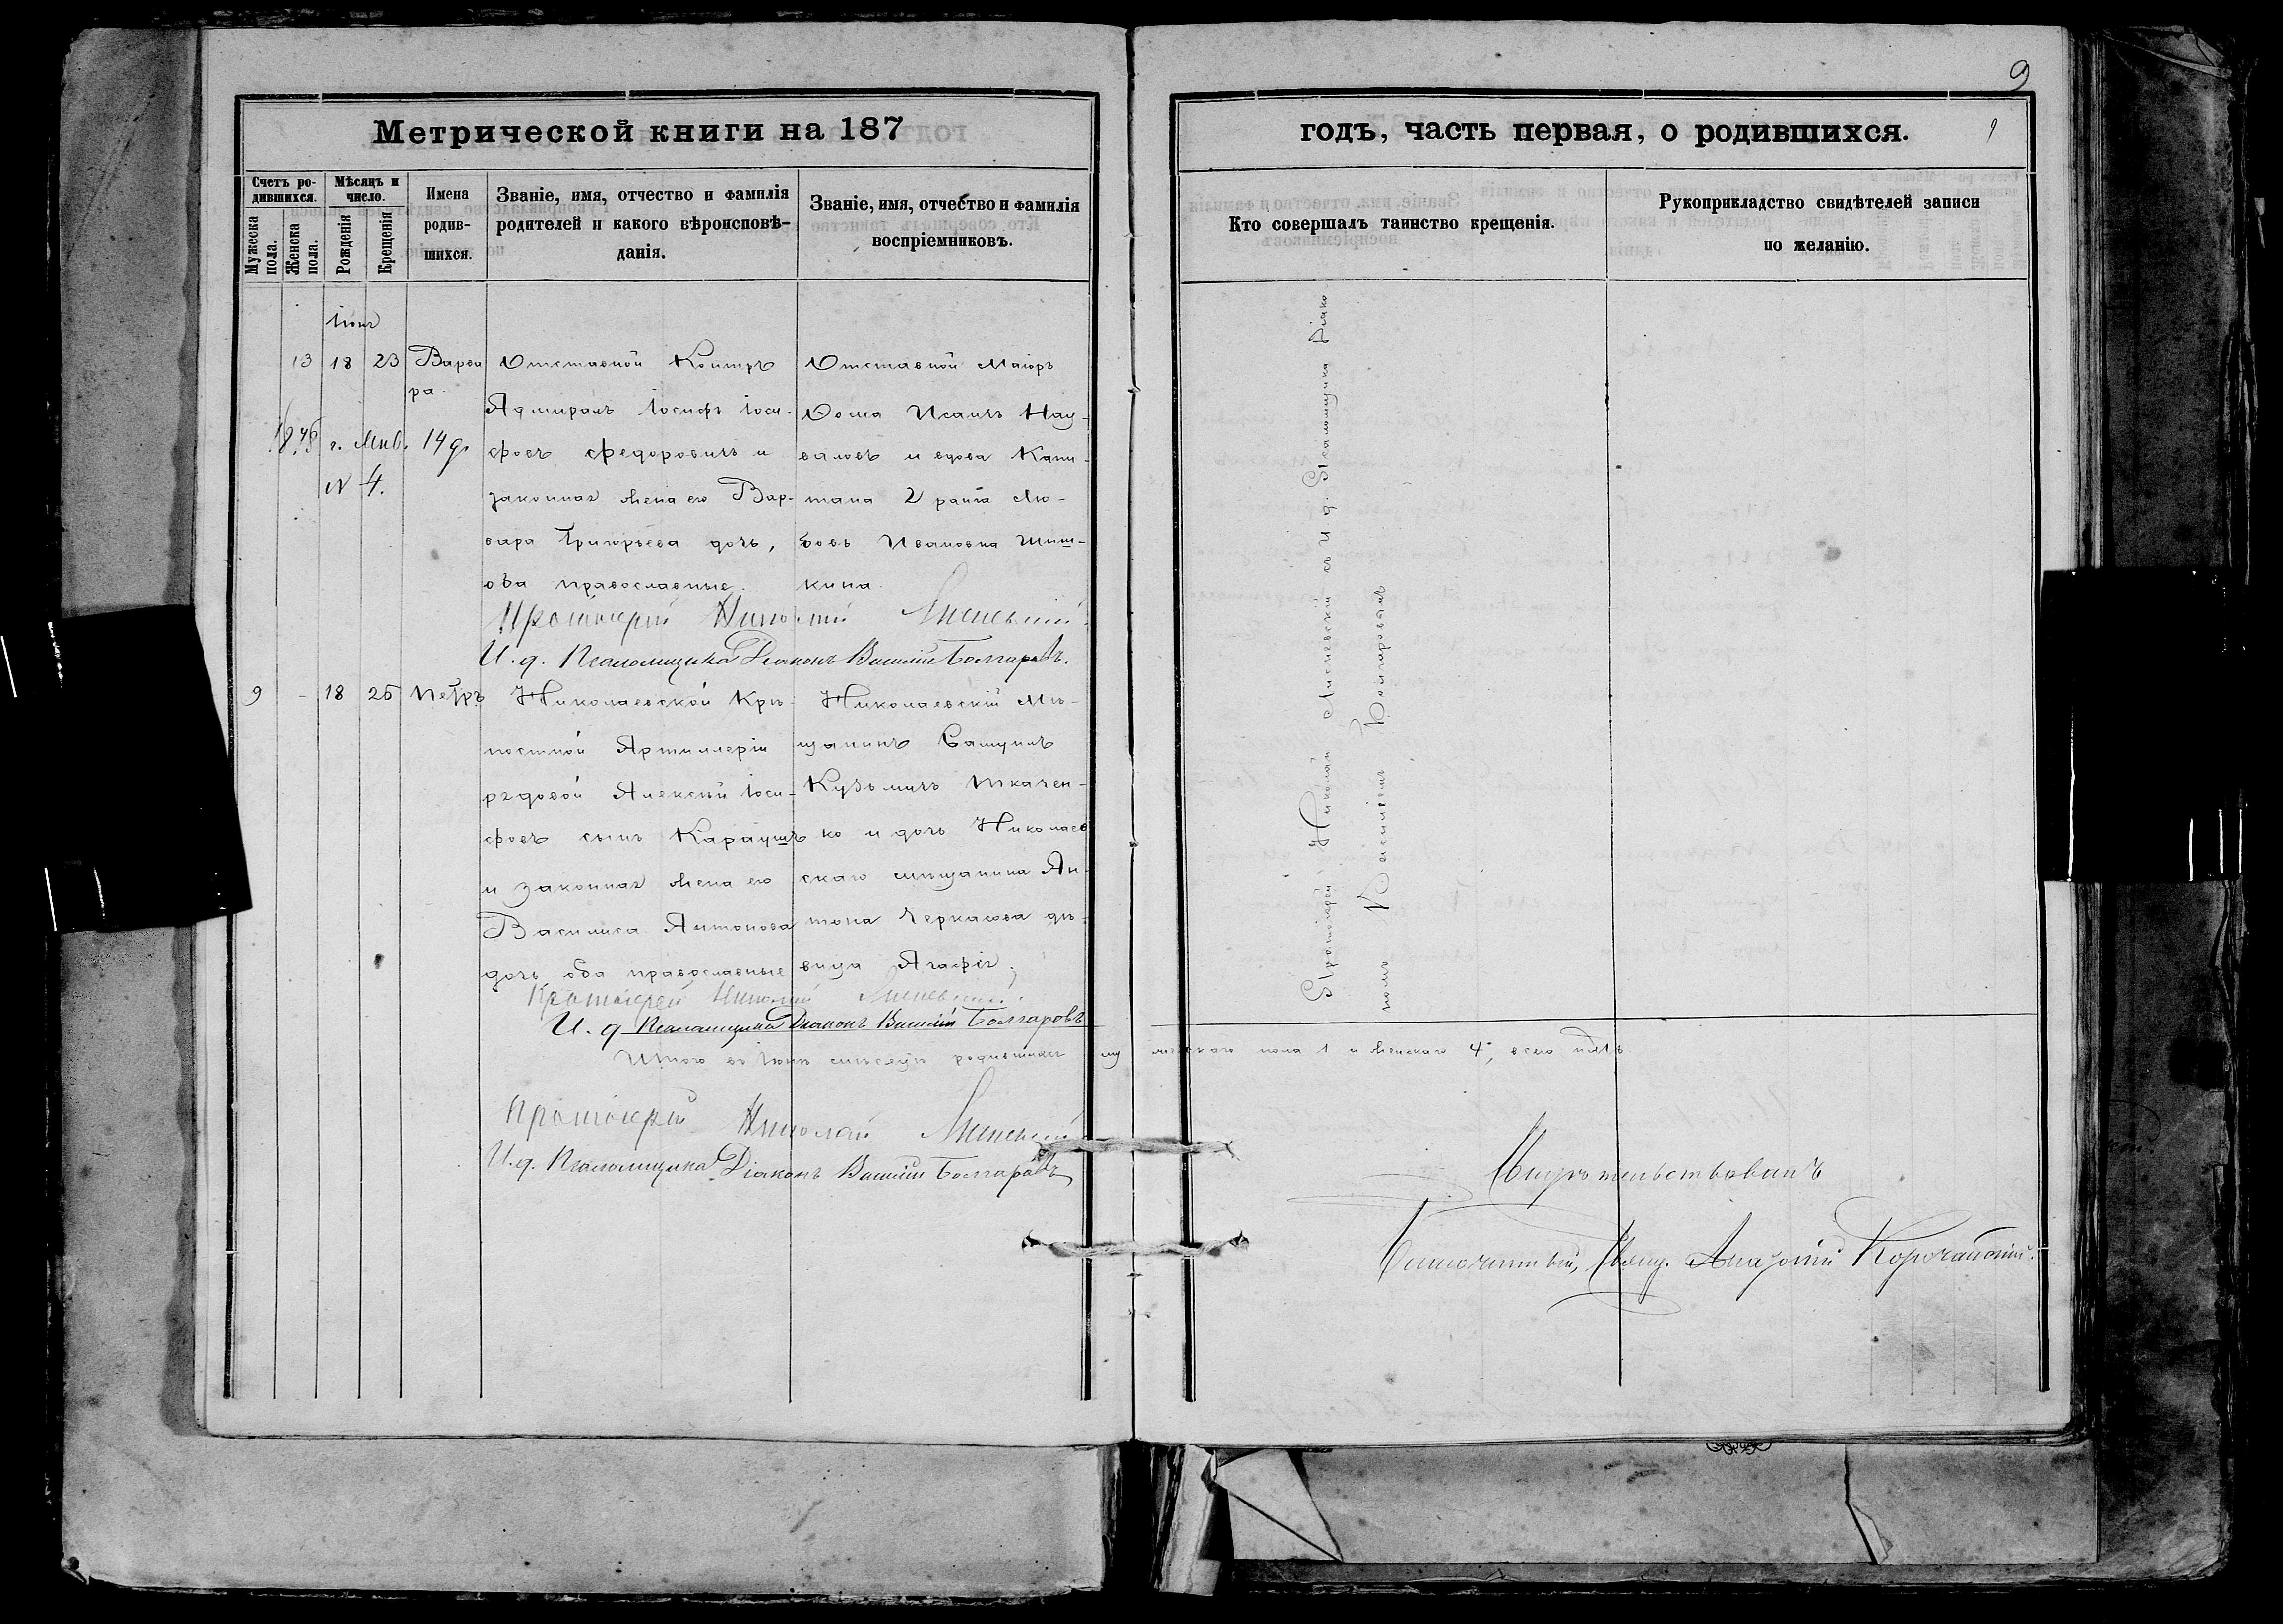 9
Метрической книги на 187
годъ, часть первая, о родившихся.
Счетъ ро-
дившихся.
Мужеска пола.
Женска пола.
Мѣсяцъ и
число.
Рожденія
Крещенія
Имена
родив-
шихся.
Званіе, имя, отчество и фамилія
родителей и какого вѣроисповѣ-
данія.
Званіе, имя, отчество и фамилія
воспріемниковъ.
Кто совершалъ таинство крещенія.
Рукоприкладство свидѣтелей записи
по желанію.
13 18 23 Варва
ра.
Отставной Контръ
Адмиралъ Іосифъ Іоси-
фовъ Федоровичъ и
законная жена его Вар-
вара Григорьева дочь,
оба православные.
Отставной Маіоръ
Ѳома Исаичъ Нау-
валовъ и вдова Капи-
тана 2 ранга Лю-
бовь Ивановна Шиш-
кина.
г. Янв. 14 д.
N 4.
Протоіерей Николай
И. д. Псаломщика Діаконъ Василій Болгаровъ.
9 - 18 25 Петръ
Николаевской Крѣ-
постной Артиллеріи
рядовой Алексѣй Іоси-
фовъ сынъ Караушъ
и законная жена его
Василиса Антонова
дочь, оба православные
Николаевскій Мѣ-
щанинъ Самуилъ
Кузьмичъ Ткачен-
ко и дочь Николаев
скаго мѣщанина Ан-
тона Черкасова дѣ-
вица Агафія.
Протоіерей Николай
И. д. Псаломщика Діаконъ Василій Болгаровъ
Протоіерей Николай съ И. д. Псаломщика Діако
номъ Василіемъ Болгаровымъ
Итого въ Іюнѣ мѣсяцѣ родившихся мужескаго пола 1 и женскаго 4, всего пять
Протоіерей Николай
И. д. Псаломщика Діаконъ Василій Болгаровъ
Свидѣтельствовалъ
Благочинный, Свящ.